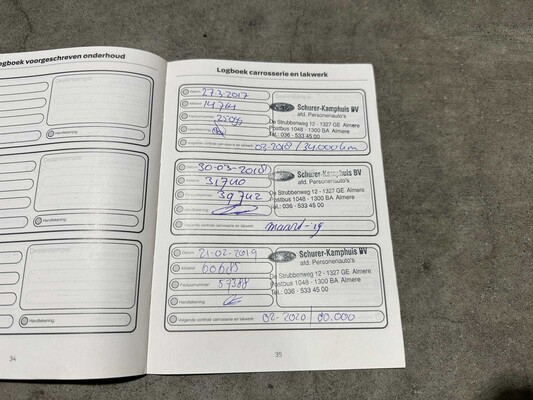 ogboek voorgeschreven onderhoud
Handtekening:
Handtekening:
Handtekening:
34
Logboek carrosserie en lakwerk
Datum: 27-3-2017
14744
Schurer-Kamphuis BV
afd. Personenauto's
De Strubbenweg 12 - 1327 GE Almere
Postbus 1048 - 1300 BA Almere
Tel.: 036 - 533 45 00
03-2018 / 34.000km
Datum: 30-03-2018
31740
39742
Schurer-Kamphuis BV
afd. Personenauto's
De Strubbenweg 12 - 1327 GE Almere
Postbus 1048 - 1300 BA Almere
Tel.: 036 - 533 45 00
Volgende controle carrosserie en lakwerk: maart-19
Datum: 21-02-2019
Factuurnummer: 57388
Handtekening:
Schurer-Kamphuis BV
afd. Personenauto's
De Strubbenweg 12 - 1327 GE Almere
Postbus 1048 - 1300 BA Almere
Tel.: 036 - 533 45 00
Volgende controle carrosserie en lakwerk: 02-2020 / 80.000
35